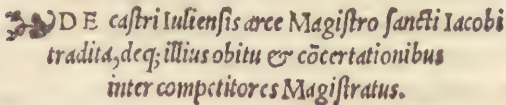 DE caſtri Iulienſis arce Magiſtro ſancti Iacobi
tradita, deq; illius obitu & cõcertationibus
inter competitores Magiſtratus.